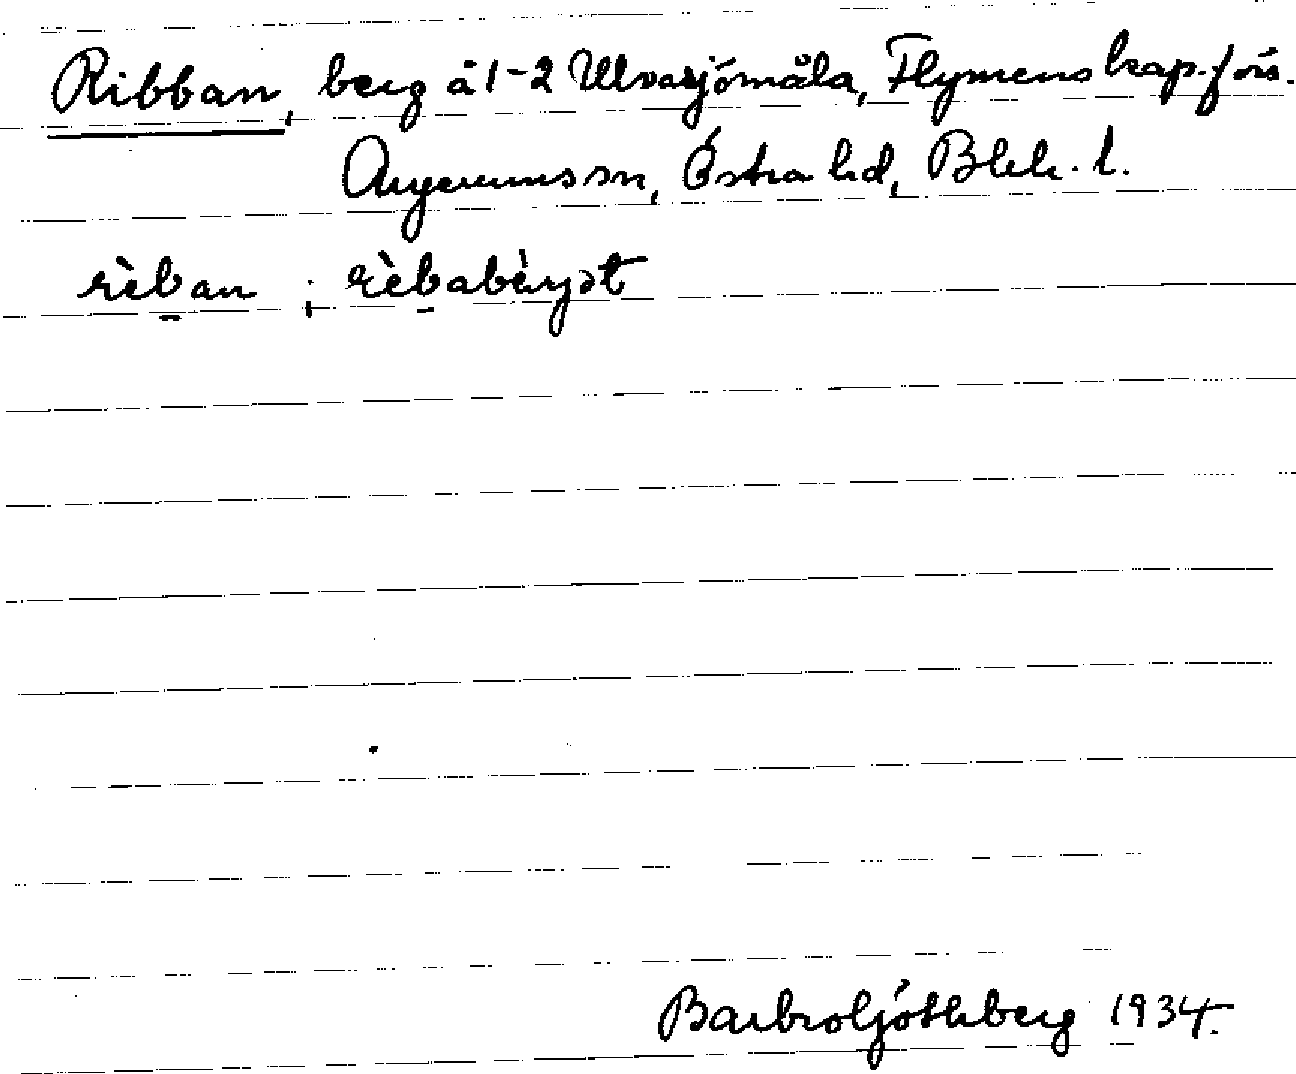 Ribban, berg å 1-2 Ulvasjömåla, Flymens kap.förs.
Augerums sn, Östra hd, Blek. l.
rèban ; rèbabèrjət
Barbro Göthberg 1934.